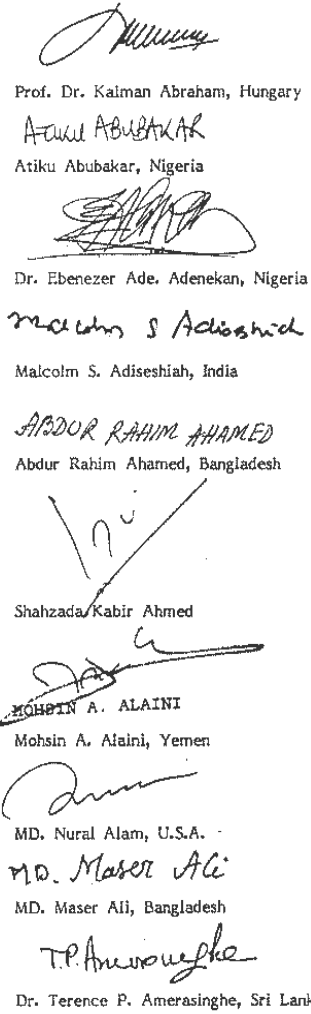 Prof. Dr. Kalman Abraham, Hungary
Atiku ABUBAKAR
Atiku Abubakar, Nigeria
Dr. Ebenezer Ade. Adenekan, Nigeria
Malcolm S Adiseshiah
Malcolm S. Adiseshiah, India
ABDUR RAHIM AHAMED
Abdur Rahim Ahamed, Bangladesh
Shahzada Kabir Ahmed
MOHSIN A. ALAINI
Mohsin A. Alaini, Yemen
MD. Nural Alam, U.S.A.
MD. Maser Ali
MD. Maser Ali, Bangladesh
T.P. Amerasinghe
Dr. Terence P. Amerasinghe, Sri Lank